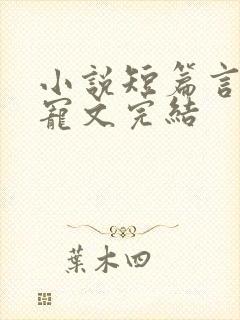 小説短篇言
寵文完結
葉木四